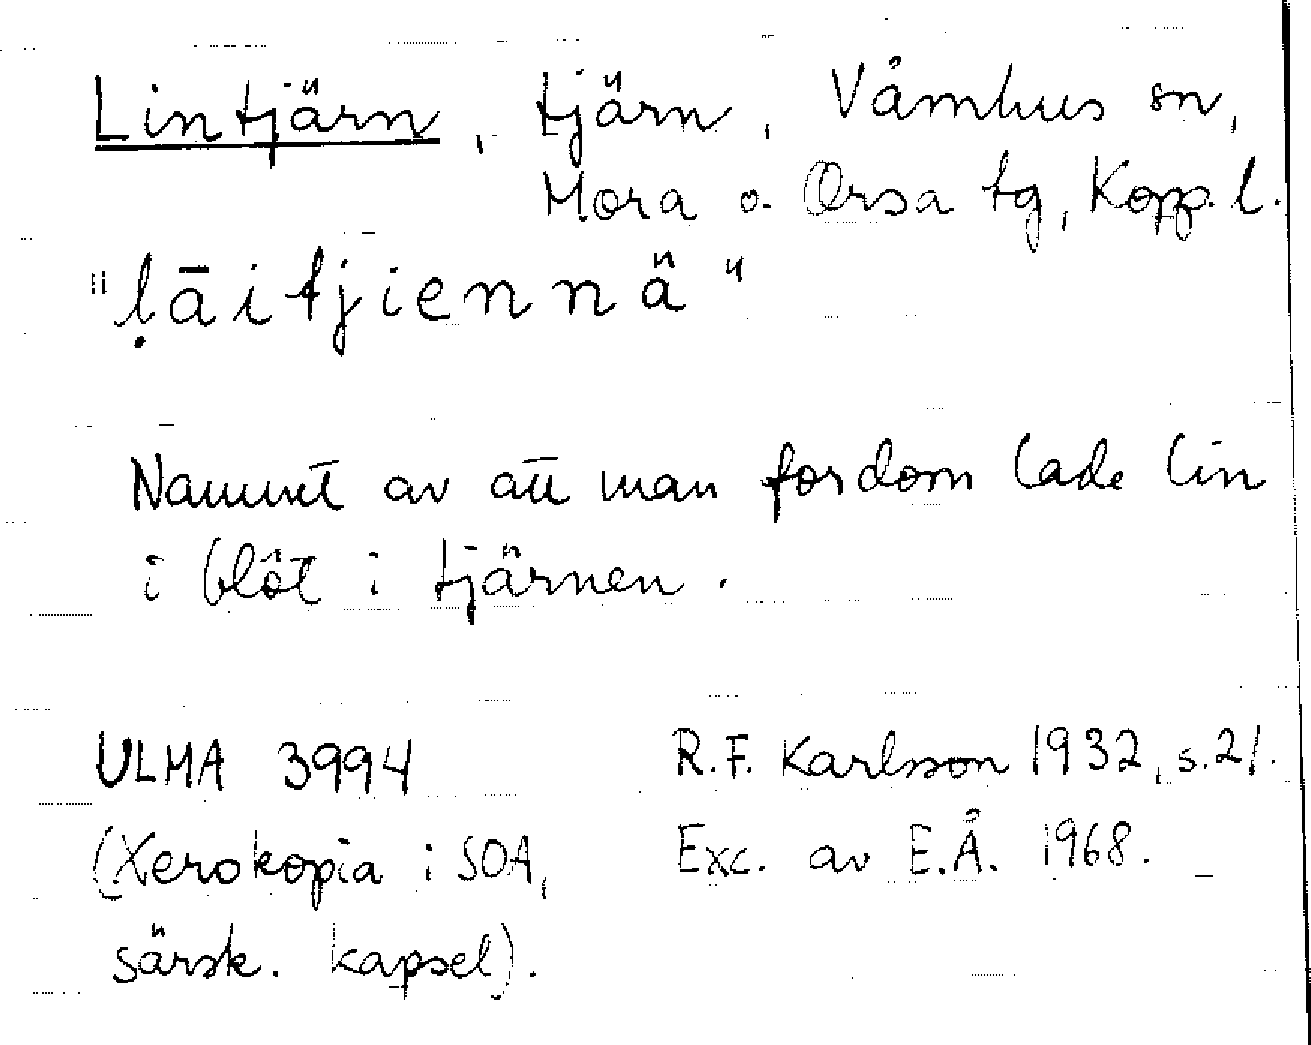 Lintjärn, tjärn, Våmhus sn,
Mora o. Orsa tg, Kopp. l.
"ḷāitjiennä"
Namnet av att man fordom lade lin
i blöt i tjärnen.
ULMA 3994 R.F. Karlsson 1932, s. 21.
(Xerokopia i SOA, Exc. av E.Å. 1968.
särsk. kapsel).